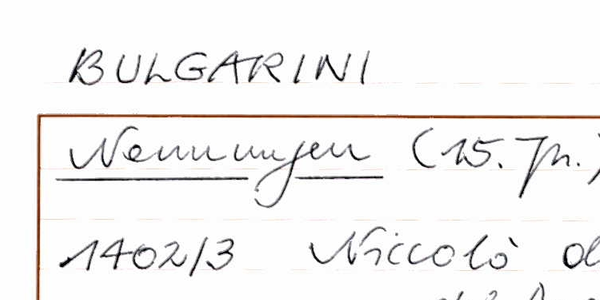 BULGARINI
Nennungen (15. Jh.)
1402/3 Niccolò